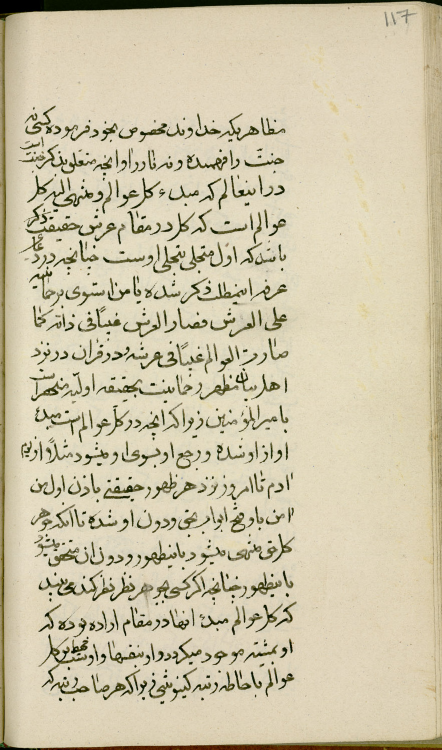 117
مظاهریکه خداوند مخصوص بخود فرموده کسی نه
جنت را فهمیده و نه نار را و آنچه متعلق بذکر جنت است
در اینعالم که مبدء کل عوالم و منتهی الیه کل
عوالم است که کل در مقام عرش حقیقت ذکر
باشد که اول متجلی بتجلی اوست چنانچه در دعای
عرفه اینمطلب ذکر شده یا من استوی برحمانیته
علی العرش فصار العرش غیباً فی ذاته کما
صارت العوالم غیباً فی عرشه و در قرآن در نزد
اهل بیان مظهر رحمانیت بحقیقت اولیه منحصر است
بامیر المؤمنین زیرا که آنچه در کل عوالم است مبدء
او از او شده و رجع او بسوی او میشود مثلاً از یوم
آدم تا امروز نزد هر ظهور حقیقتی باذن اول من
آمن باو فتح ابواب بحق و دون او شده تا آنکه جوهر
کل حق منتهی میشود باینظهور و دون آن متحقق میشود
باینظهور چنانچه اگر کسی بجوهر نظر نظر کند می بیند
که کل عوالم مبدء آنها در مقام اراده بوده که
او بمشیت موجود میگردد و او بنفسها و اوست محیط بر کل
عوالم باحاطه رتبه کینونیتی زیرا که هر صاحب رتبه که